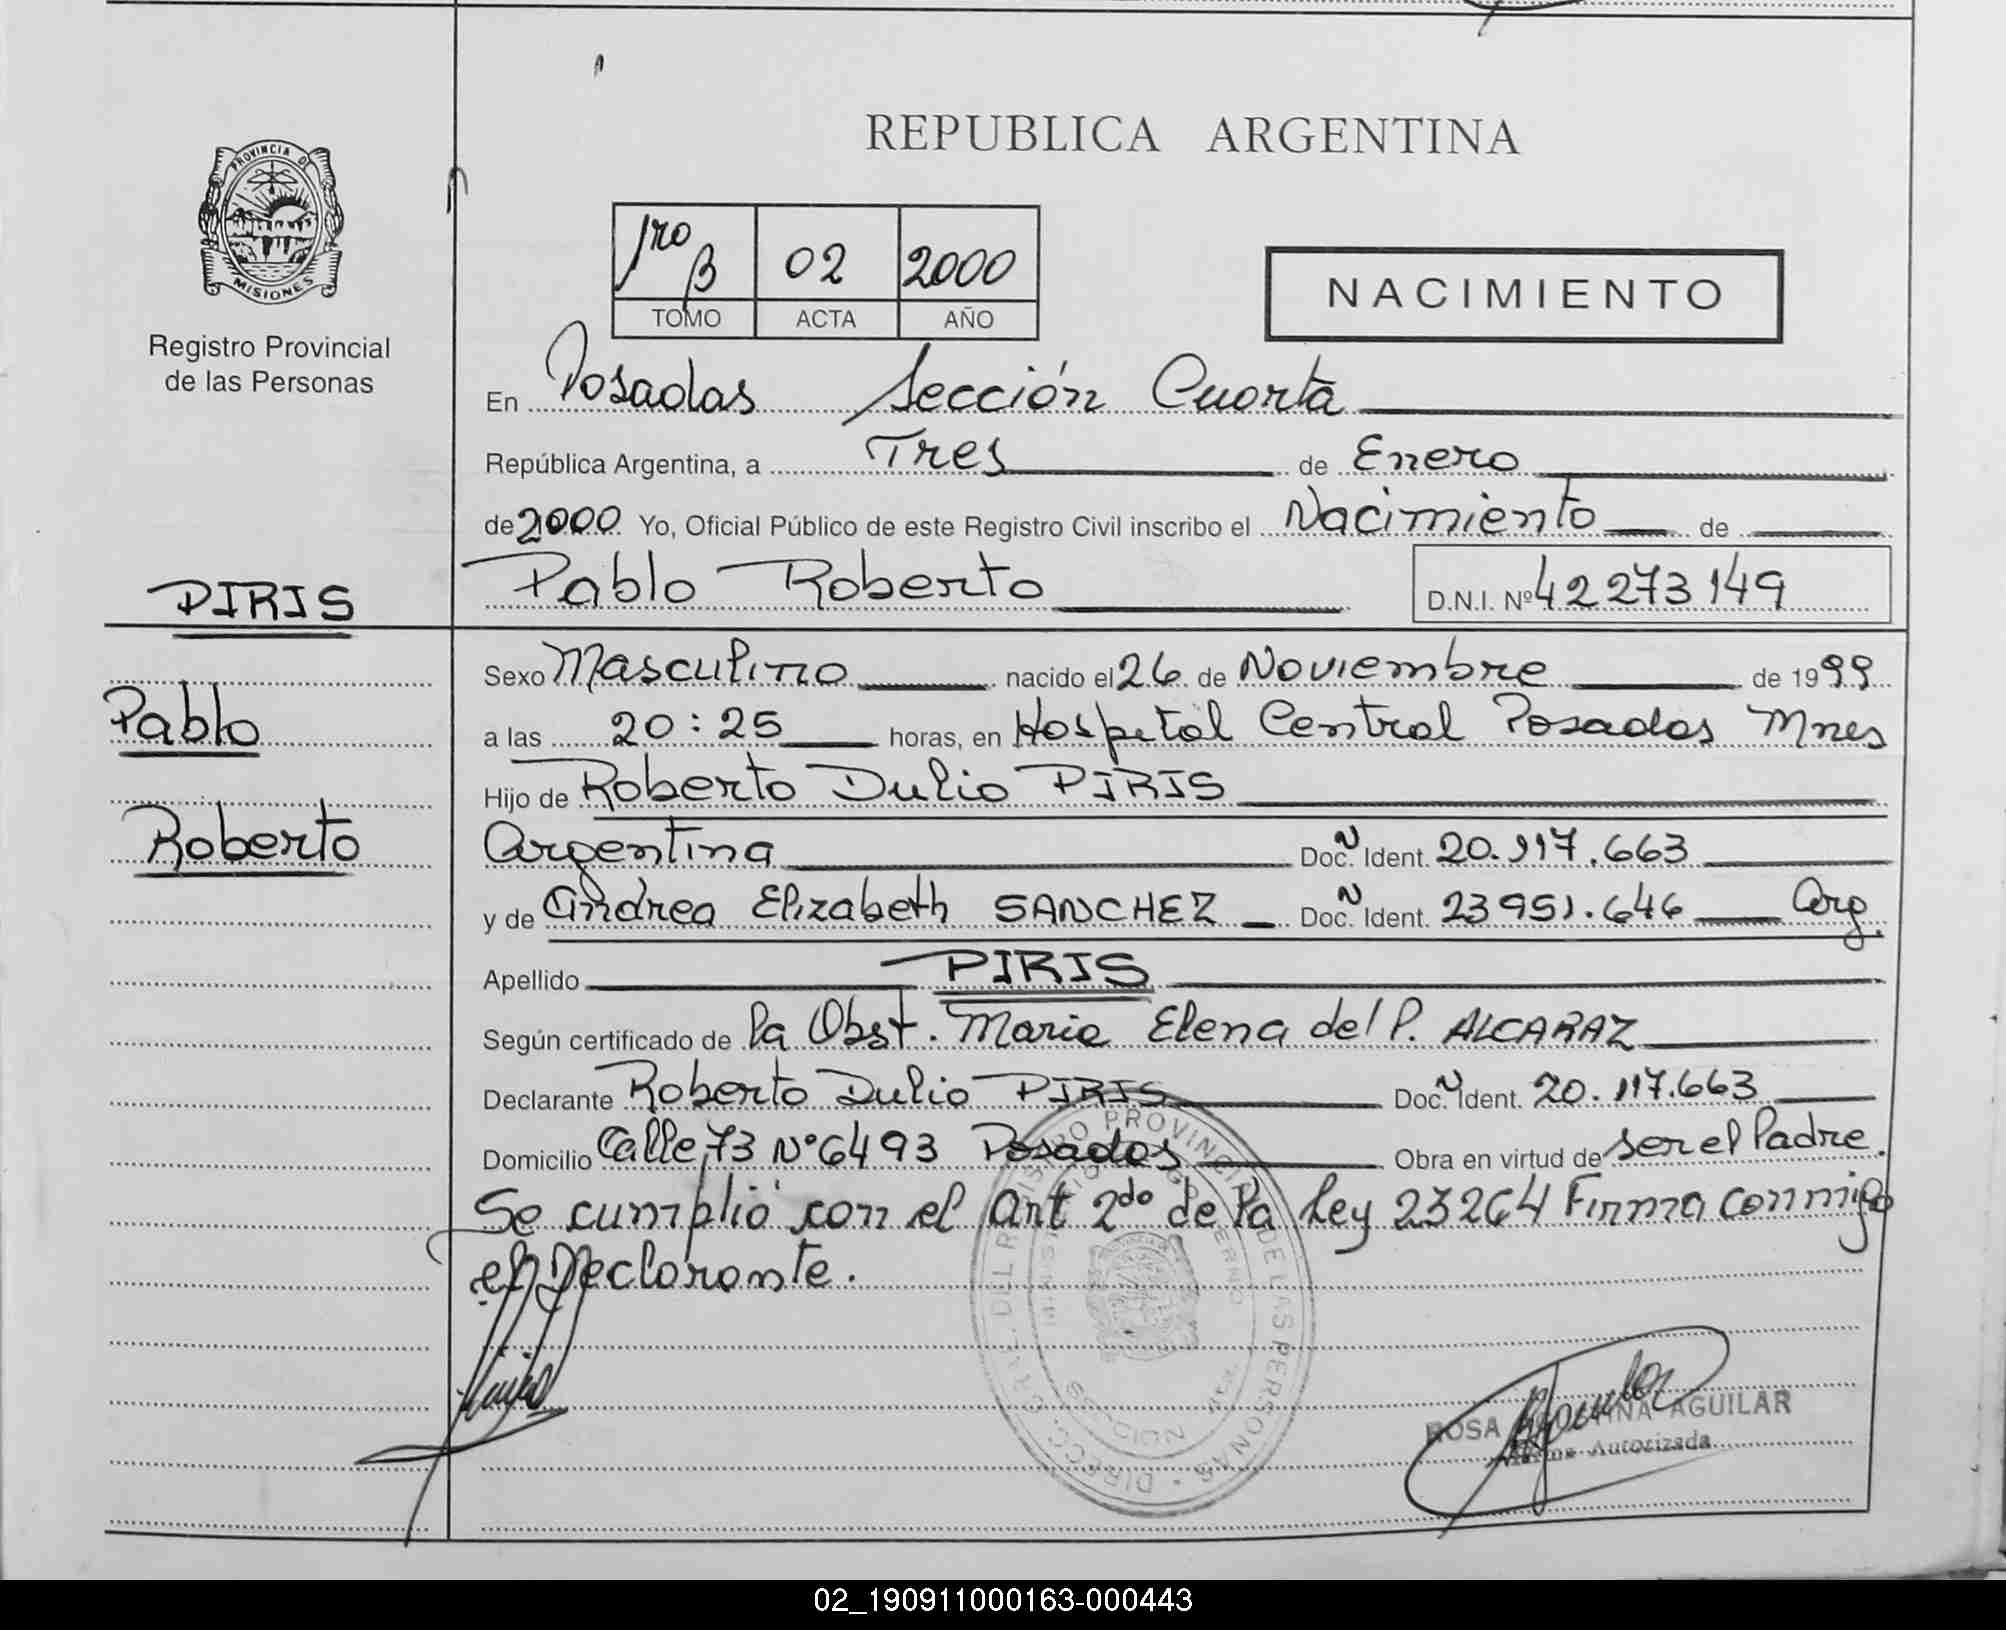 REPUBLICA ARGENTINA
PROVINCIA DE
MISIONES
Registro Provincial
de las Personas
1ro B 02 2000
TOMO ACTA AÑO
NACIMIENTO
En Posadas Sección Cuarta
República Argentina, a Tres de Enero
de 2000 Yo, Oficial Público de este Registro Civil inscribo el Nacimiento de
Pablo Roberto D.N.I. Nº 42 273 149
PIRIS
Pablo
Roberto
Sexo Masculino nacido el 26 de Noviembre de 1999
a las 20:25 horas, en Hospital Central Posadas Mnes
Hijo de Roberto Dulio PIRIS
Argentina Doc. N Ident. 20.117.663
y de Andrea Elizabeth SANCHEZ Doc. N Ident. 23 951.646 Arg.
Apellido PIRIS
Según certificado de la Obst. Maria Elena del P. ALCARAZ
Declarante Roberto Dulio PIRIS Doc. N Ident. 20.117.663
Domicilio Calle 73 Nº 6493 Posadas Obra en virtud de ser el Padre.
Se cumplió con el Art 2do de la Ley 23264 Firma conmigo
el Declarante.
DIRECC. GRAL. DEL REGISTRO PROVINCIAL DE LAS PERSONAS
MINISTERIO DE GOBIERNO
ROSA AGUSTINA AGUILAR
Firma Autorizada
02_190911000163-000443